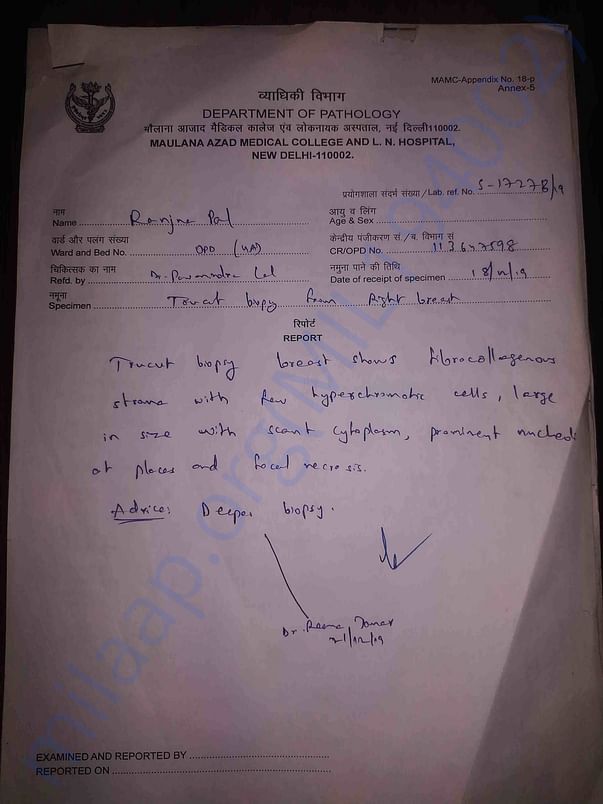 MAMC-Appendix No. 18-p
Annex-5
व्याधिकी विभाग
DEPARTMENT OF PATHOLOGY
मौलाना आजाद मैडिकल कालेज एंव लोकनायक अस्पताल, नई दिल्ली110002.
MAULANA AZAD MEDICAL COLLEGE AND L. N. HOSPITAL,
NEW DELHI-110002.
प्रयोगशाला संदर्भ संख्या/Lab. ref. No. S-17278/19
नाम
Name Ranjna Pal
आयु व लिंग
Age & Sex
वार्ड और पलंग संख्या
Ward and Bed No. OPD
केन्द्रीय पंजीकरण सं./ब. विभाग सं
CR/OPD No. 113647598
चिकित्सक का नाम
Refd. by Dr. Lal
नमुना पाने की तिथि
Date of receipt of specimen 18/12/19
नमूना
Specimen Trucut biopsy from Right breast
रिपोर्ट
REPORT
Trucut biopsy breast shows fibrocollagenous
stroma with few hyperchromatic cells, large
in size with scant cytoplasm, prominent nucleoli
at places and focal necrosis.
Advice: Deeper biopsy.
Dr. Reena Tomar
21/12/19
EXAMINED AND REPORTED BY
REPORTED ON
milaap.org